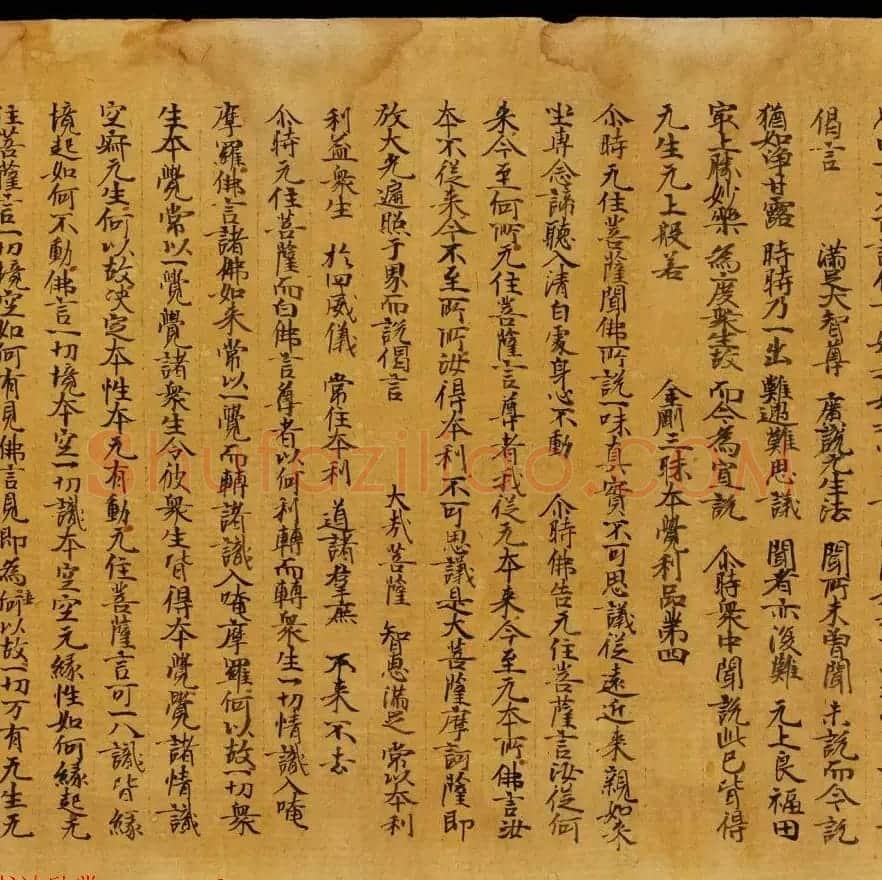 偈言 滿足大智尊 廣說无生法 聞所未曾聞 未說而今說
猶如淨甘露 時時乃一出 難遇難思議 聞者亦復難 无上良福田
最上勝妙藥 為度衆生故 而今為宣說 尒時衆中聞說此已皆得
无生无上般若 金剛三昧本覺利品第四
尒時无住菩薩聞佛所說一味真實不可思議從遠近来親如来
坐專念諦聽入清白處身心不動 尒時佛告无住菩薩言汝從何
来今至何所无住菩薩言尊者我從无本来今至无本所佛言汝
本不從来今不至所所汝得本利不可思議是大菩薩摩訶薩即
放大光遍照千界而說偈言 大哉菩薩 智惠滿足 常以本利
利益衆生 於四威儀 常住本利 道諸羣庶 不来不去
尒時无住菩薩而白佛言尊者以何利轉而轉衆生一切情識入唵
摩羅佛言諸佛如来常以一覺而轉諸識入唵摩羅何以故一切衆
生本覺常以一覺覺諸衆生令彼衆生皆得本覺覺諸情識
空寂无生何以故决定本性本无有動无住菩薩言可一八識皆緣
境起如何不動佛言一切境本空一切識本空空无緣性如何緣起无
住菩薩言一切境空如何有見佛言見即為何以故一切万有无生无
shufaziliao.com